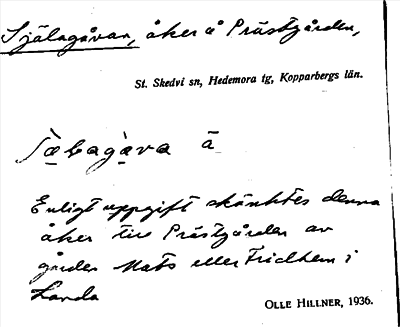 Själagåvan, åker å Prästgården,
St. Skedvi sn, Hedemora tg, Kopparbergs län.
ā
Enligt uppgift skänktes denna
åker till Prästgården av
gården Mats eller Fridhem i
Landa
OLLE HILLNER, 1936.